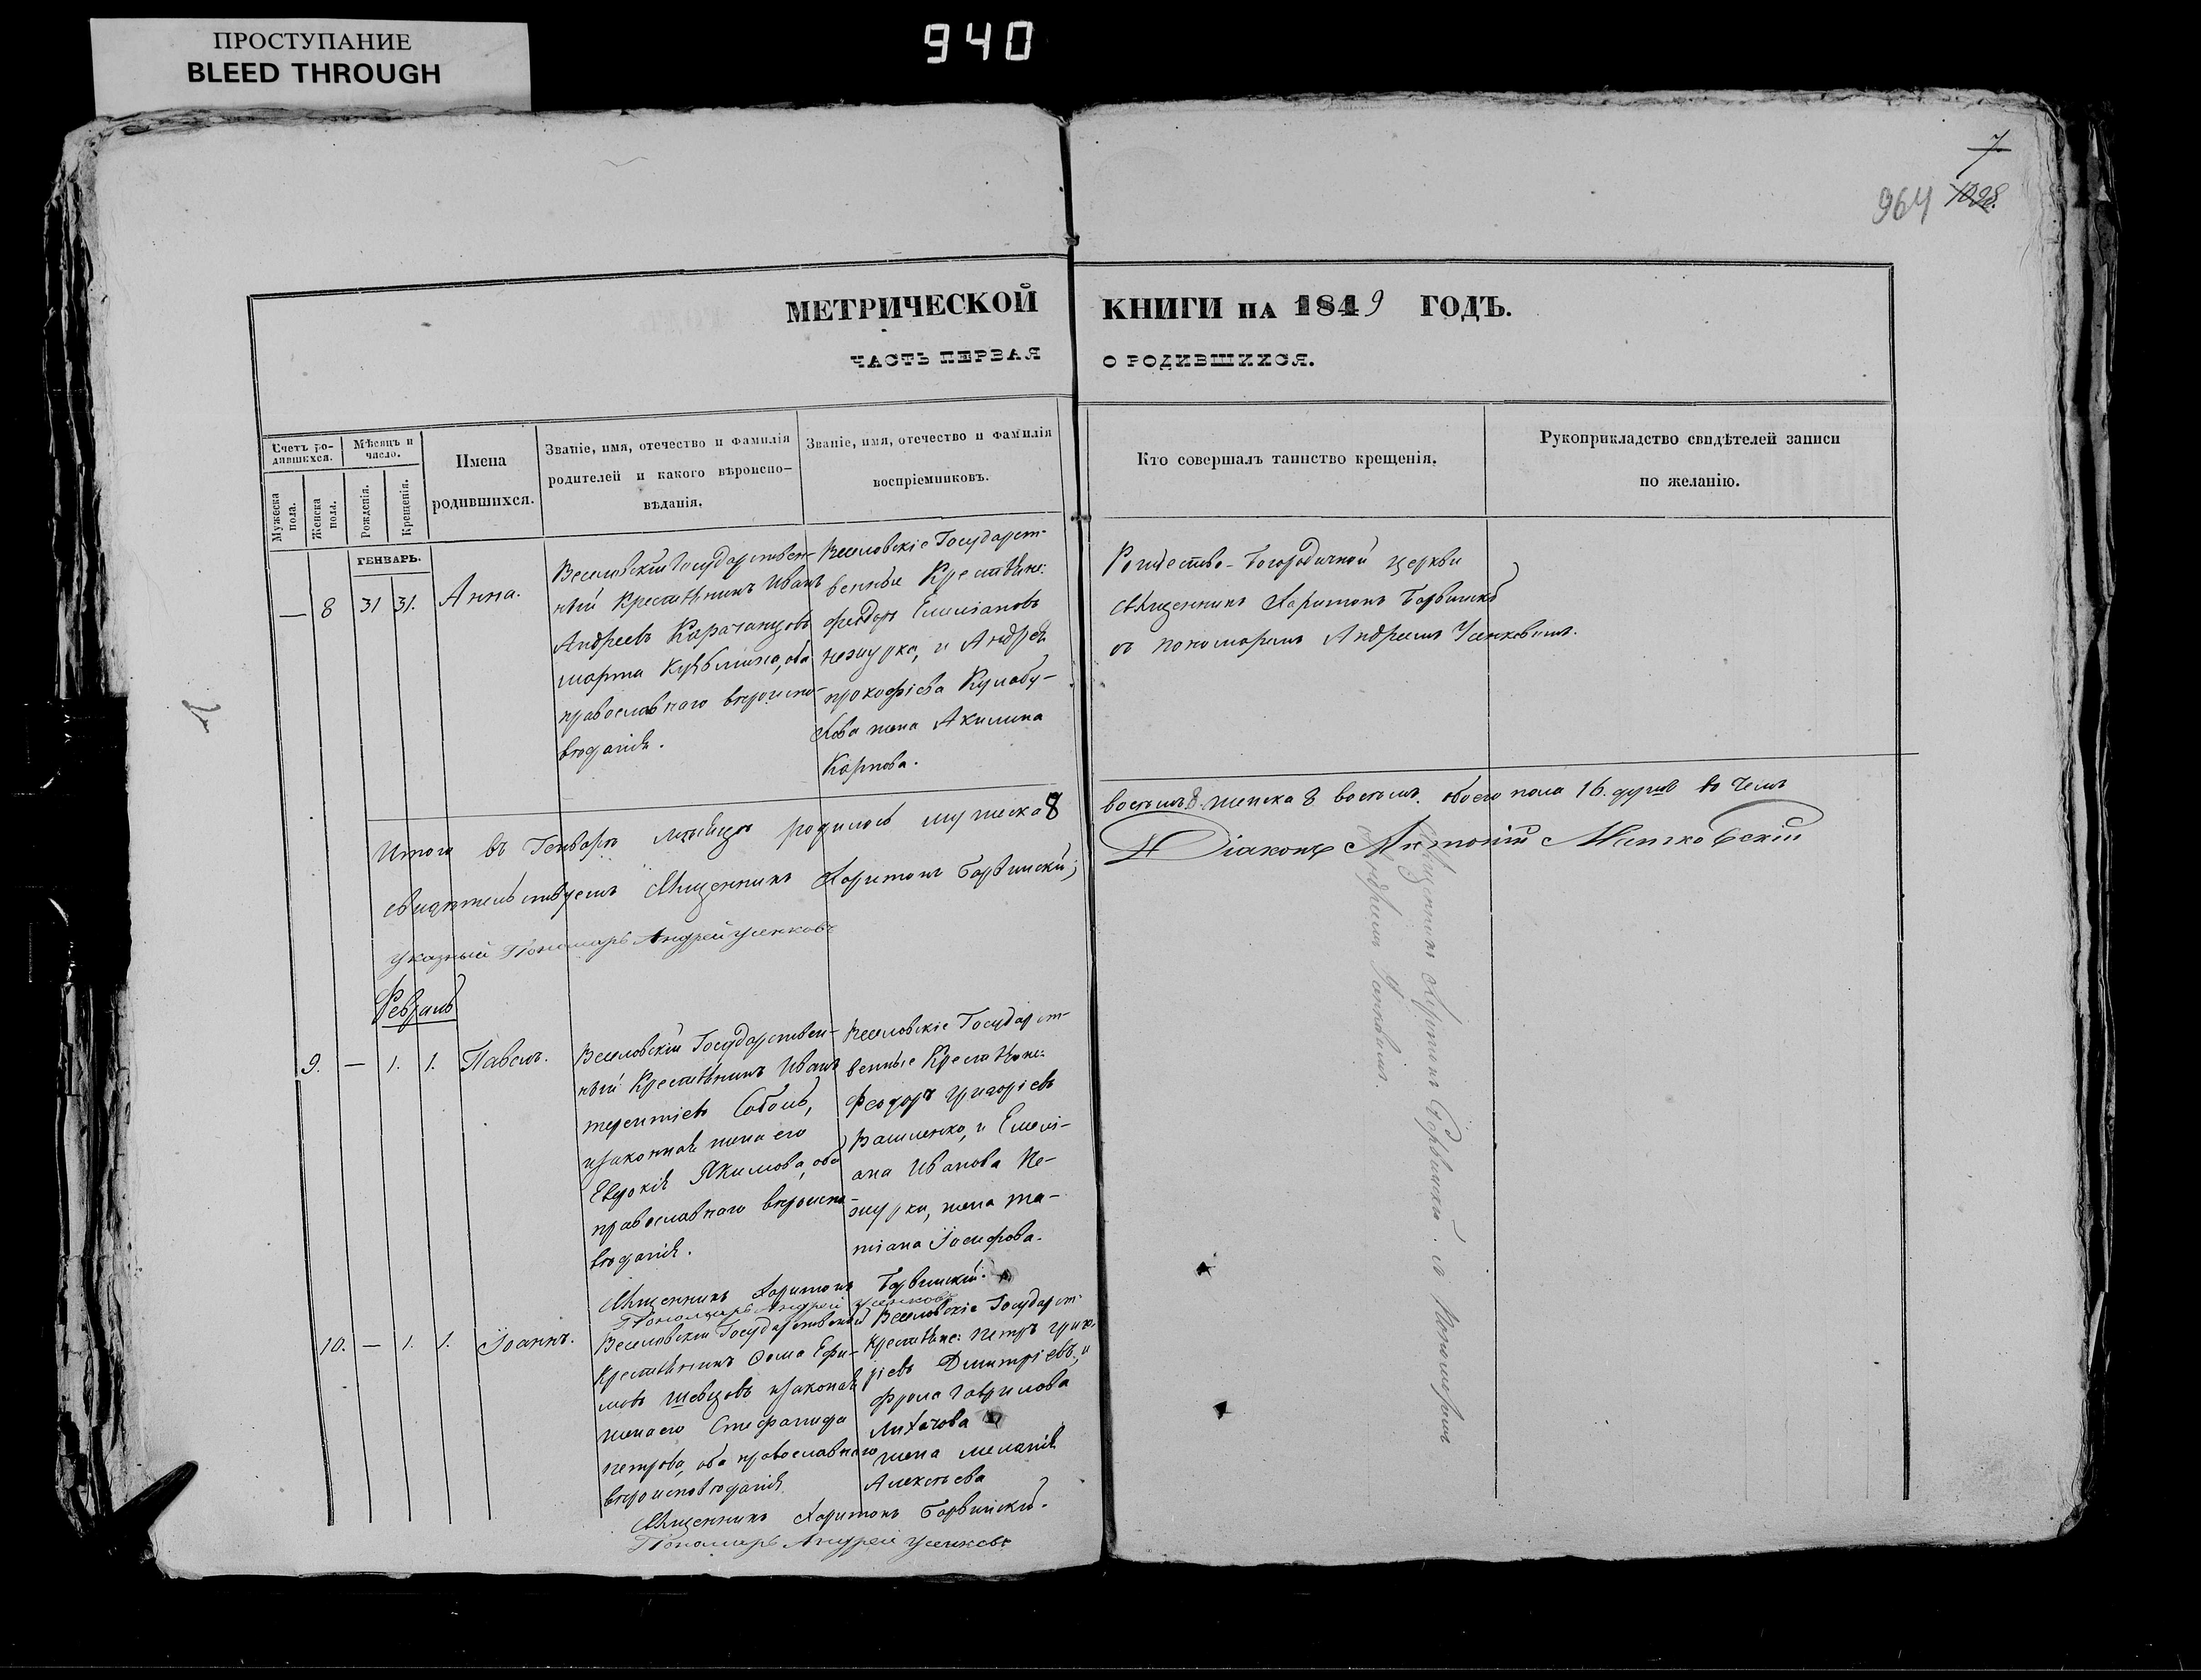 ПРОСТУПАНИЕ
BLEED THROUGH
940
7
964 1028.
МЕТРИЧЕСКОЙ КНИГИ НА 1849 ГОДЪ.
ЧАСТЬ ПЕРВАЯ О РОДИВШИХСЯ.
Счетъ родившихся.
Мужеска пола.
Женска пола.
Мѣсяцъ и число.
Рожденія.
Крещенія.
Имена
родившихся.
Званіе, имя, отечество и фамилія
родителей и какого вѣроиспо-
вѣданія.
Званіе, имя, отечество и фамилія
воспріемниковъ.
Кто совершалъ таинство крещенія.
Рукоприкладство свидѣтелей записи
по желанію.
ГЕНВАРЬ.
— 8 31 31. Анна.
Веселовскій Государствен-
ный Крестьянинъ Иванъ
Андреевъ
Марта оба
православнаго вѣроиспо-
вѣданія.
Веселовскіе Государст-
венные Крестьяне:
Федоръ Емеліановъ
и Андрея
Прокофіева
жена Акилина
Карпова.
Рождество-Богородичной церкви
священникъ Харитонъ
съ пономаремъ Андреемъ Усенковымъ.
Итого въ Генварѣ мѣсяцѣ родилось мужеска 8
восемь 8. женска 8 восемь. обоего пола 16. душъ въ чемъ
свидѣтельствуемъ Священникъ Харитонъ
Діаконъ Антоній
указный Пономарь Андрей Усенковъ
Февраль
9. — 1. 1. Павелъ.
Веселовскій Государствен-
ный Крестьянинъ Иванъ
Терентіевъ Соболь,
и законная жена его
Евдокія Якимова, оба
православнаго вѣроиспо-
вѣданія.
Веселовскіе Государст-
венные Крестьяне:
Феодоръ Григоріевъ
Вашленко, и Емелі-
ана Иванова
жена Та-
тіана Іосифова.
Священникъ Харитонъ
Пономарь Андрей Усенковъ
10. — 1. 1. Іоаннъ.
Веселовскій Государственный
Крестьянинъ Ѳома Ефи-
мовъ Шевцовъ и законая
жена его Стефанида
Петрова, оба православнаго
вѣроисповѣданія.
Веселовскіе Государст:
Крестьяне: Петръ Григо-
ріевъ Димитріевъ, и
Фрола Гаврилова
Лихачова
жена Меланія
Алексѣева
Священникъ Харитонъ
Пономарь Андрей Усенковъ